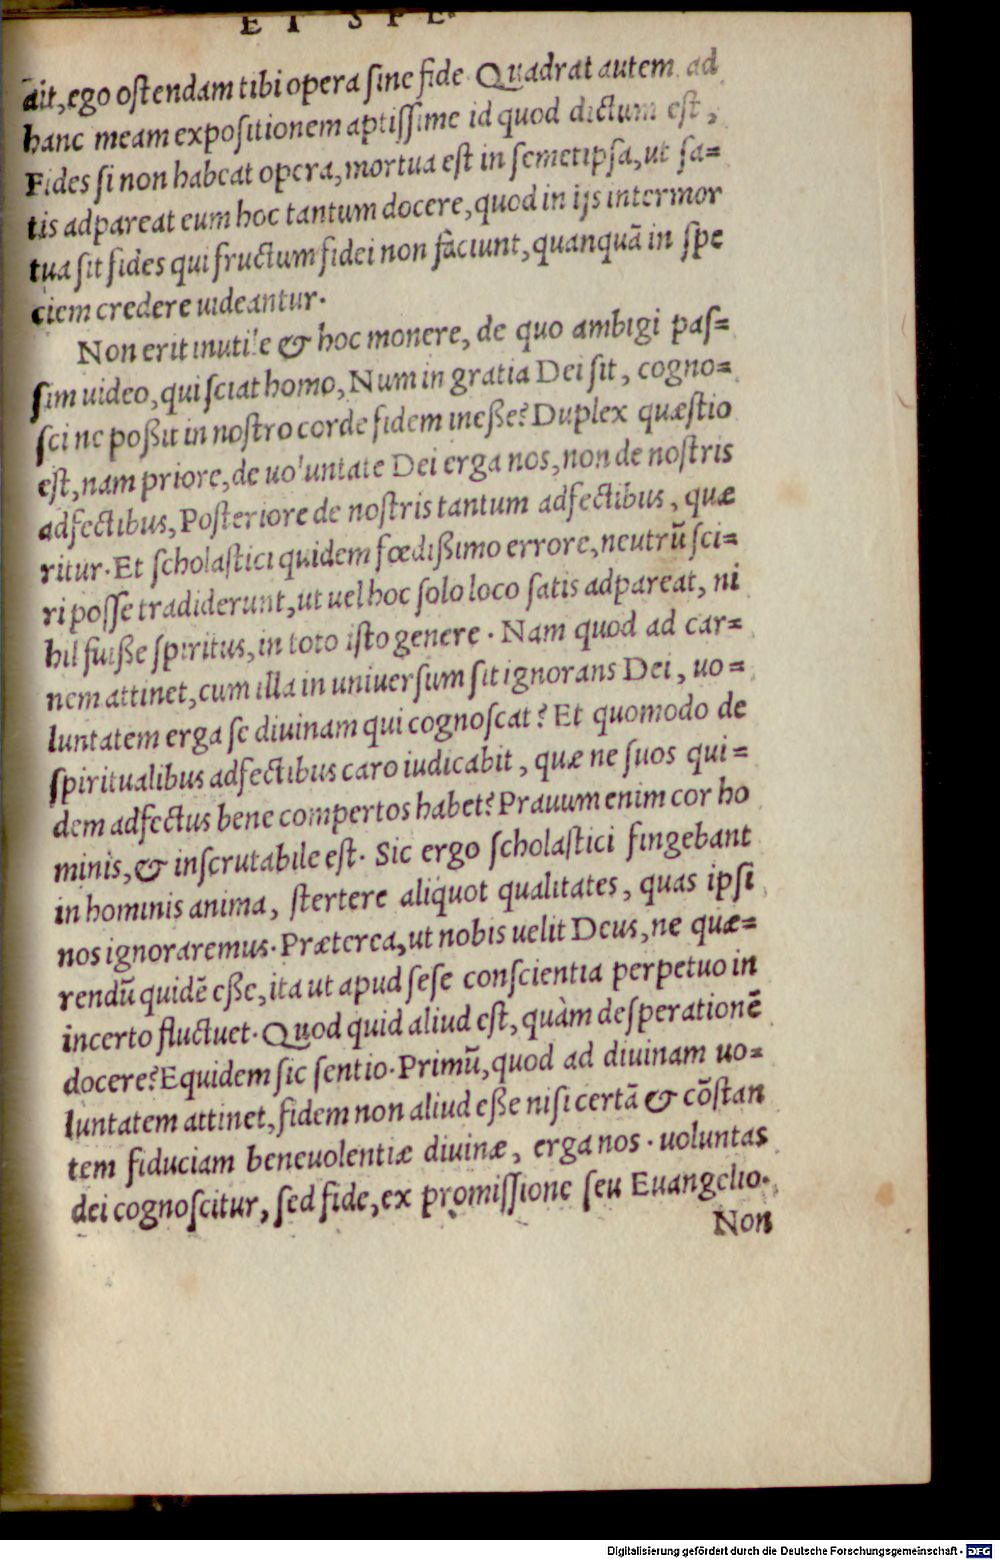 ET SPE.
ait, ego ostendam tibi opera sine fide Quadrat autem ad
hanc meam expositionem aptissime id quod dictum est,
Fides si non habeat opera, mortua est in semetipsa, ut sa=
tis adpareat eum hoc tantum docere, quod in ijs intermor
tua sit fides qui fructum fidei non faciunt, quanquā in spe
ciem credere uideantur.
Non erit inutile & hoc monere, de quo ambigi pas=
sim uideo, qui sciat homo, Num in gratia Dei sit, cogno=
sci ne poßit in nostro corde fidem ineße? Duplex quæstio
est, nam priore, de uoluntate Dei erga nos, non de nostris
adfectibus, Posteriore de nostris tantum adfectibus, quæ
ritur. Et scholastici quidem fœdißimo errore, neutrū sci=
ri posse tradiderunt, ut uel hoc solo loco satis adpareat, ni
hil fuiße spiritus, in toto isto genere. Nam quod ad car=
nem attinet, cum illa in uniuersum sit ignorans Dei, uo=
luntatem erga se diuinam qui cognoscat? Et quomodo de
spiritualibus adfectibus caro iudicabit, quæ ne suos qui=
dem adfectus bene compertos habet? Prauum enim cor ho
minis, & inscrutabile est. Sic ergo scholastici fingebant
in hominis anima, stertere aliquot qualitates, quas ipsi
nos ignoraremus. Præterea, ut nobis uelit Deus, ne quæ=
rendū quidē eße, ita ut apud sese conscientia perpetuo in
incerto fluctuet. Quod quid aliud est, quàm desperationē
docere? Equidem sic sentio. Primū, quod ad diuinam uo=
luntatem attinet, fidem non aliud eße nisi certā & cōstan
tem fiduciam beneuolentiæ diuinæ, erga nos. uoluntas
dei cognoscitur, sed fide, ex promissione seu Euangelio.
Non
Digitalisierung gefördert durch die Deutsche Forschungsgemeinschaft - DFG